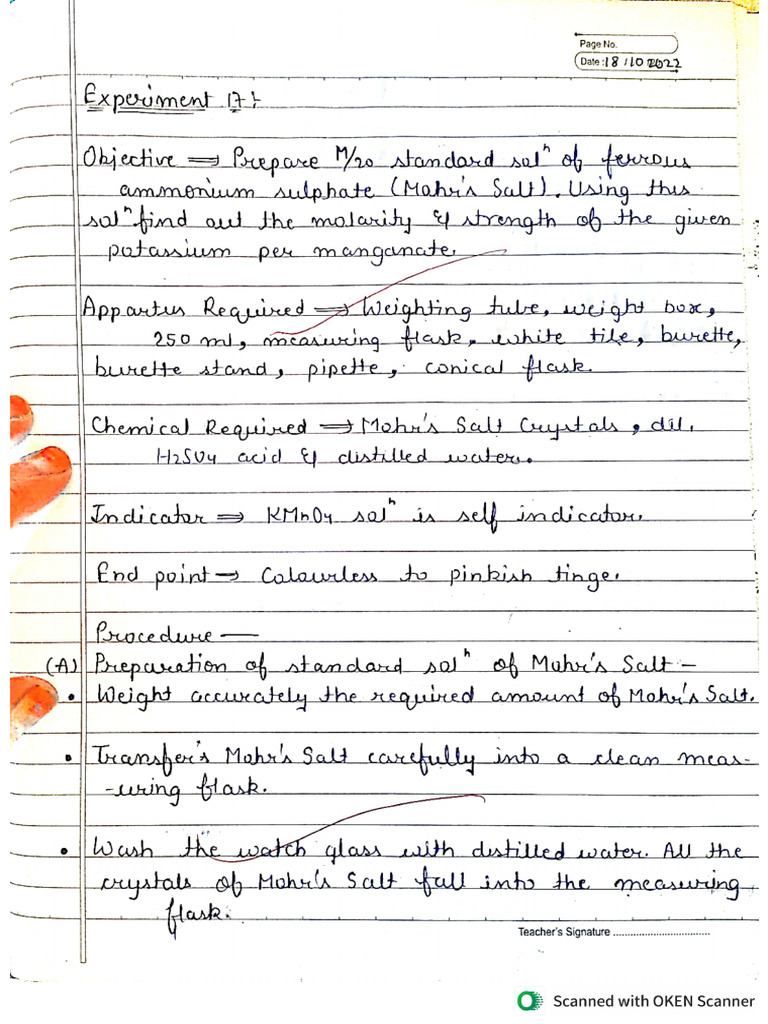 Page No.
Date : 18/10/2022
Experiment 17:
Objective ⇒ Prepare M/20 standard solⁿ of ferrous
ammonium sulphate (Mohr's Salt). Using this
solⁿ find out the molarity & strength of the given
potassium per manganate.
Appartus Required ⇒ Weighting tube, weight box,
250 ml, measuring flask, white tile, burette,
burette stand, pipette, conical flask.
Chemical Required ⇒ Mohr's Salt Crystals, dil.
H2SO4 acid & distilled water.
Indicator ⇒ KMnO4 solⁿ is self indicator.
End point → Colourless to pinkish tinge.
Procedure —
(A) Preparation of standard solⁿ of Mohr's Salt -
• Weight accurately the required amount of Mohr's Salt.
• Transfer's Mohr's Salt carefully into a clean meas-
-uring flask.
• Wash the watch glass with distilled water. All the
crystals of Mohr's Salt fall into the measuring
flask.
Teacher's Signature ..................................
Scanned with OKEN Scanner